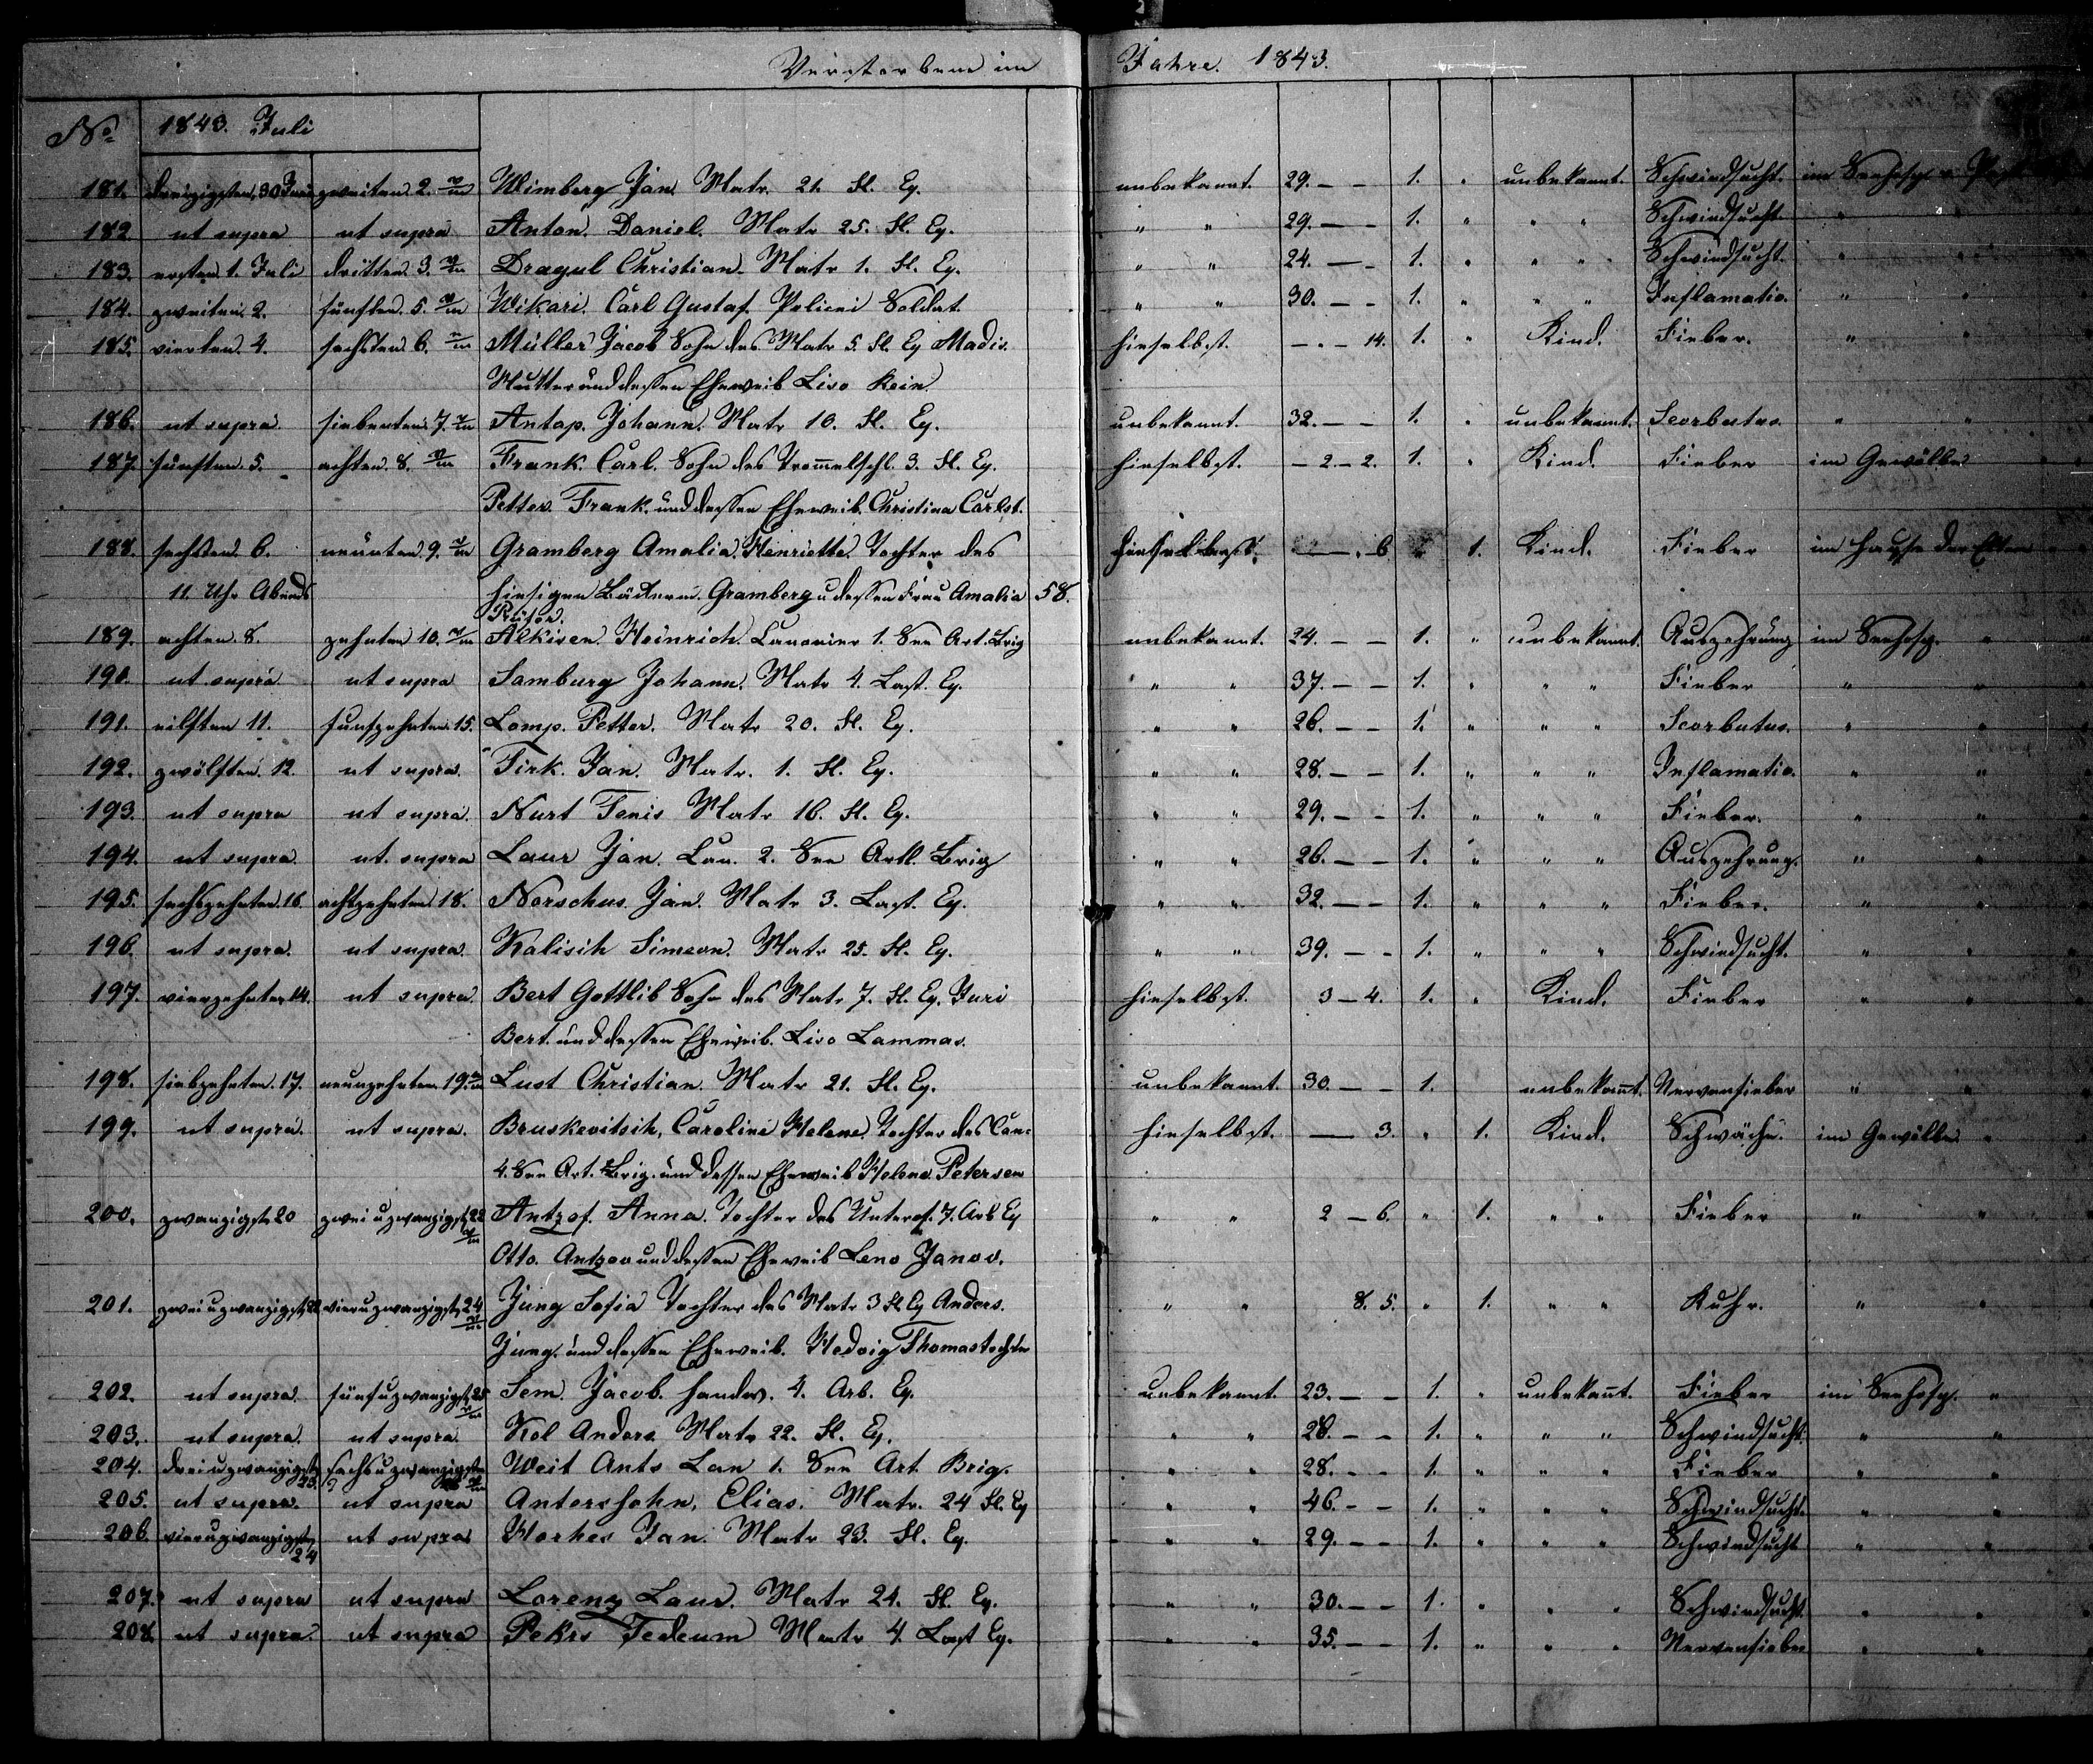 Verstorbene im Jahre. 1843.
No 1843. Juli
181. dreizigsten, 30 Juni zweiten. 2. Wimberg Jan. Matr. 21. Fl. Eq. unbekannt. 29. – – 1. " unbekannt. Schwindsucht. im Seehosp.
182. ut supra ut supra Anton. Daniel. Matr 25. Fl. Eq. " " 29. – – 1. " " " Schwindsucht. " "
183. ersten 1. Juli dritten 3. Dragul Christian. Matr 1. Fl. Eq. " " 24. – – 1. " " " Schwindsucht. " "
184. zweiten. 2. fünften. 5. Wikari. Carl Gustaf. Policei Soldat. " " 30. – – 1. " " " Inflamatio. " "
185. vierten. 4. sechsten. 6. Müller Jacob Sohn des Matr 5. Fl. Eq Madis. hieselbst. – . – 14. 1. " Kind. Fieber. " "
Mutter und dessen Eheweib Liso Rein
186. ut supra. siebenten. 7. Antap. Johann. Matr 10. Fl. Eq. unbekannt. 32. – – 1. " unbekannt. Scorbutus. " "
187. fünften 5. achten. 8. Frank. Carl. Sohn des Trom̅elschl. 3. Fl. Eq. hieselbst. – 2 – 2. 1. " Kind. Fieber im Gewölbe
Petter Frank. und dessen Eheweib. Christina Carlst.
188. sechsten 6. neunten. 9. Gramberg Amalia. Henriette. Tochter des hieselbst. – . 6 " 1. Kind. Fieber im Hause der Eltern
11. Uhr Abends hiesigen Gramberg u dessen Frau Amalia 58.
189. achten. 8. zehnten 10. Alkiren. Heinrich. Canonier 1. See Art. Brig unbekannt. 24. – – 1. " unbekannt. Auszehrung im Seehosp. "
190. ut supra ut supra Samburg Johann. Matr 4. Last. Eq. " " 37. – – 1. " " " Fieber " "
191. eilften 11. funfzehnten. 15. Lomp. Petter. Matr 20. Fl. Eq. " " 26. – – 1. " " " Scorbutus. " "
192. zwölften. 12. ut supra. Tirk. Jan. Matr. 1. Fl. Eq. " " 28. – – 1. " " " Inflamatio. " "
193. ut supra ut supra. Nurt Tenis Matr 16. Fl. Eq. " " 29. – – 1. " " " Fieber. " "
194. ut supra. ut. supra Laur Jan. Can. 2. See Artl. Brig " " 26. – – 1. " " " Auszehrung. " "
195. sechszehnten. 16. achtzehnten. 18. Norschus. Jan. Matr 3. Last. Eq. " " 32. – – 1. " " " Fieber. " "
196. ut supra. ut supra. Kalisih Simeon. Matr 25. Fl. Eq. " " 39. – – 1. " " " Schwindsucht. " "
197. vierzehnten 14. ut supra. Bert Gottlib Sohn des Matr 7. Fl. Eq. Juri hieselbst. 3 – 4. 1. " Kind. Fieber " "
Bert. und dessen Eheweib. Liso Lammas.
198. siebzehnten. 17. neunzehnten 19. Lust Christian. Matr 21. Fl. Eq. unbekannt. 30. – – 1. unbekan̅t. Nervenfieber " "
199. ut supra. ut supra. Bruskevitsih, Caroline Helene. Tochter des Can= hieselbst. – 3. " 1. Kind. Schwäche. im Gewölbe "
4. See Art. Brig. und dessen Eheweib Helena Petersen
200. zwanzigst. 20 zwei u zwanzigst. 22 Antzof. Anna. Tochter des Unterof. 7. Arb Eq " " 2 – 6. " 1. " " Fieber " "
Otto. Antzov und dessen Eheweib Leno Janov.
201. zwei u zwanzigst. 22 vier u zwanzigst. 24 Jung Sofia Tochter des Matr 3 Fl Eq Anders. " " 8. 5. " 1. " " Ruhr. " "
Jung. und dessen Eheweib. Hedvig Thomastochter
202. ut supra. fünf u zwanzigst. 25 Sem. Jacob. Handw. 4. Arb. Eq. unbekannt. 23. – – 1. " unbekan̅t. Fieber im Seehosp. "
203. ut supra. ut supra. Kol Anders Matr 22. Fl. Eq. " " 28. – – 1. " " " Schwindsucht. " "
204. drei u zwanzigsten 23. sechs u zwanzigsten Weit Ants Can 1. See Art. Brig. " " 28. – – 1. " " " Fieber " "
205. ut supra. ut supra Anterssohn, Elias. Matr. 24 Fl. Eq " " 46. – – 1. " " " Schwindsucht. " "
206. vier u zwanzigsten 24 ut supra Horkes Jan. Matr 23. Fl. Eq. " " 29. – – 1. " " " Schwindsucht " "
207. ut supra ut supra Lorenz Laur. Matr 24. Fl. Eq. " " 30. – – 1. " " " Schwindsucht. " "
208. ut supra. ut supra Pekis Tedeum Matr 4. Last Eq. " " 35. – – 1. " " " Nervenfieber " "